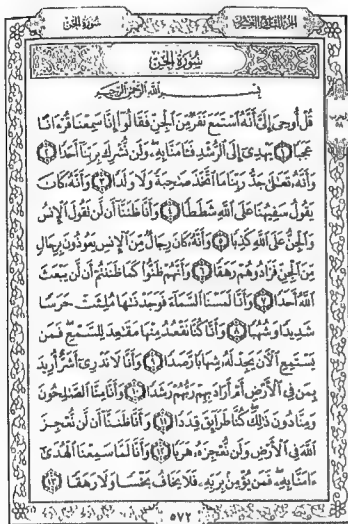 سُورَةُ الجِنِّ
الجزء التاسع والعشرون
سُورَةُ الجِنِّ
بِسْمِ اللَّهِ الرَّحْمَٰنِ الرَّحِيمِ
قُلْ أُوحِيَ إِلَيَّ أَنَّهُ ٱسْتَمَعَ نَفَرٌ مِّنَ ٱلْجِنِّ فَقَالُوٓا۟ إِنَّا سَمِعْنَا قُرْءَانًا
عَجَبًا ١ يَهْدِىٓ إِلَى ٱلرُّشْدِ فَـَٔامَنَّا بِهِۦ وَلَن نُّشْرِكَ بِرَبِّنَآ أَحَدًا ٢
وَأَنَّهُۥ تَعَٰلَىٰ جَدُّ رَبِّنَا مَا ٱتَّخَذَ صَٰحِبَةً وَلَا وَلَدًا ٣ وَأَنَّهُۥ كَانَ
يَقُولُ سَفِيهُنَا عَلَى ٱللَّهِ شَطَطًا ٤ وَأَنَّا ظَنَنَّآ أَن لَّن تَقُولَ ٱلْإِنسُ
وَٱلْجِنُّ عَلَى ٱللَّهِ كَذِبًا ٥ وَأَنَّهُۥ كَانَ رِجَالٌ مِّنَ ٱلْإِنسِ يَعُوذُونَ بِرِجَالٍ
مِّنَ ٱلْجِنِّ فَزَادُوهُمْ رَهَقًا ٦ وَأَنَّهُمْ ظَنُّوا۟ كَمَا ظَنَنتُمْ أَن لَّن يَبْعَثَ
ٱللَّهُ أَحَدًا ٧ وَأَنَّا لَمَسْنَا ٱلسَّمَآءَ فَوَجَدْنَٰهَا مُلِئَتْ حَرَسًا
شَدِيدًا وَشُهُبًا ٨ وَأَنَّا كُنَّا نَقْعُدُ مِنْهَا مَقَٰعِدَ لِلسَّمْعِ فَمَن
يَسْتَمِعِ ٱلْـَٔانَ يَجِدْ لَهُۥ شِهَابًا رَّصَدًا ٩ وَأَنَّا لَا نَدْرِىٓ أَشَرٌّ أُرِيدَ
بِمَن فِى ٱلْأَرْضِ أَمْ أَرَادَ بِهِمْ رَبُّهُمْ رَشَدًا ١٠ وَأَنَّا مِنَّا ٱلصَّٰلِحُونَ
وَمِنَّا دُونَ ذَٰلِكَ كُنَّا طَرَآئِقَ قِدَدًا ١١ وَأَنَّا ظَنَنَّآ أَن لَّن نُّعْجِزَ
ٱللَّهَ فِى ٱلْأَرْضِ وَلَن نُّعْجِزَهُۥ هَرَبًا ١٢ وَأَنَّا لَمَّا سَمِعْنَا ٱلْهُدَىٰٓ
ءَامَنَّا بِهِۦ فَمَن يُؤْمِنۢ بِرَبِّهِۦ فَلَا يَخَافُ بَخْسًا وَلَا رَهَقًا ١٣
٥٧٢